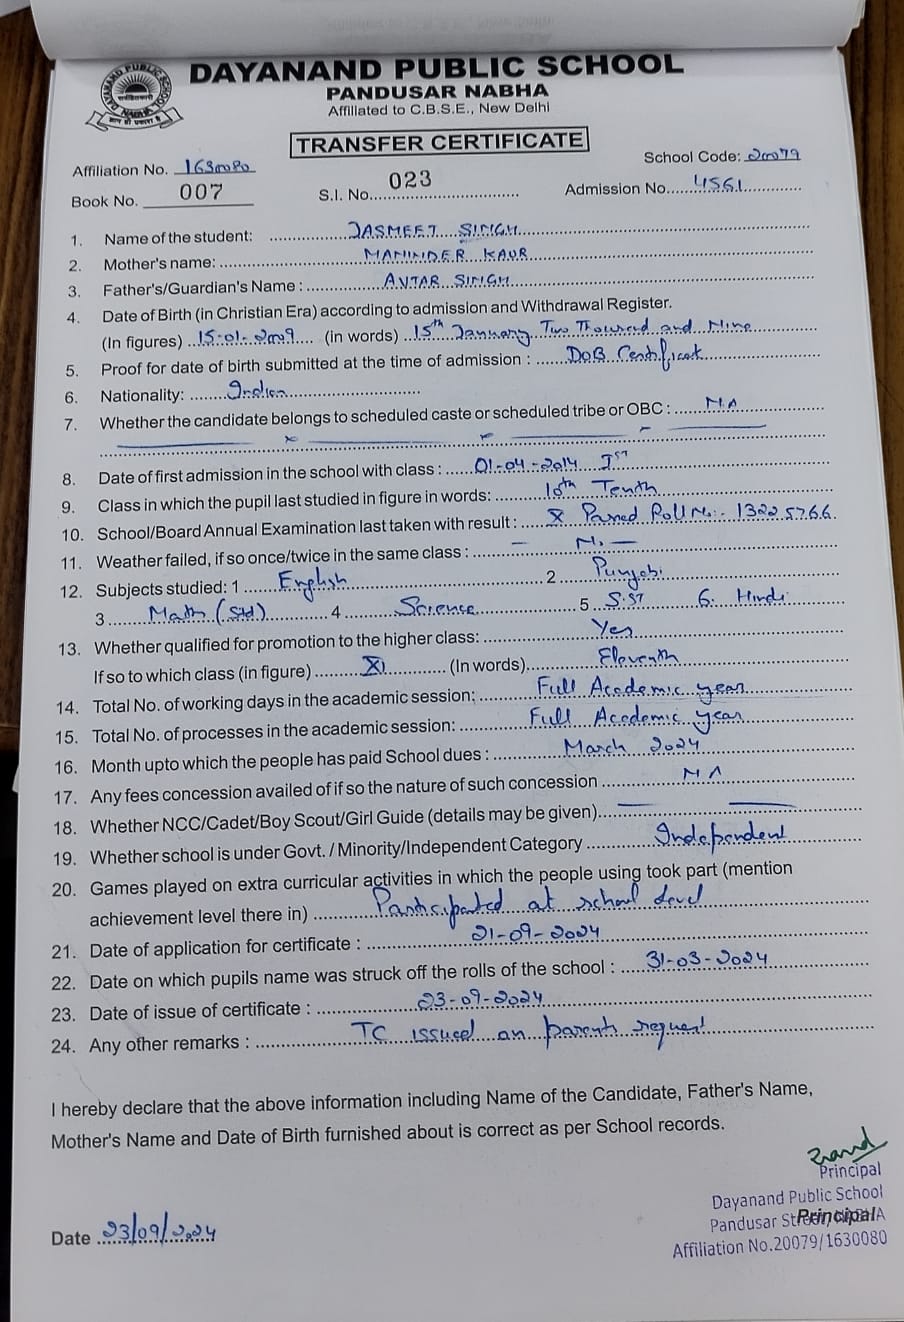 DAYANAND PUBLIC SCHOOL
PANDUSAR NABHA
Affillated to C.B.S.E., New Delhi
TRANSFER CERTIFICATE
Affiliation No. 1630080
School Code: 20079
Book No. 007
S.I. No. 023
Admission No. 4561
1. Name of the student: JASMEET SINGH
2. Mother's name: MANINDER KAUR
3. Father's/Guardian's Name : AVTAR SINGH
4. Date of Birth (in Christian Era) according to admission and Withdrawal Register.
(In figures) 15-01-2009 (in words) 15th January Two Thousand and Nine
5. Proof for date of birth submitted at the time of admission : DOB Certificat
6. Nationality: Indian
7. Whether the candidate belongs to scheduled caste or scheduled tribe or OBC : NA
8. Date of first admission in the school with class : 01-04-2014 Ist
9. Class in which the pupil last studied in figure in words: 10th Tenth
10. School/Board Annual Examination last taken with result : X Passed Roll No. - 13225766.
11. Weather failed, if so once/twice in the same class : — No —
12. Subjects studied: 1 English 2 Punjabi
3 Math (Std) 4 Science 5 S.ST 6. Hindi
13. Whether qualified for promotion to the higher class: Yes
If so to which class (in figure) XI (In words) Eleventh
14. Total No. of working days in the academic session: Full Academic year
15. Total No. of processes in the academic session: Full Academic year
16. Month upto which the people has paid School dues : March 2024
17. Any fees concession availed of if so the nature of such concession NA
18. Whether NCC/Cadet/Boy Scout/Girl Guide (details may be given)
19. Whether school is under Govt. / Minority/Independent Category Independent
20. Games played on extra curricular activities in which the people using took part (mention
achievement level there in) Participated at school level
21. Date of application for certificate : 21-09-2024
22. Date on which pupils name was struck off the rolls of the school : 31-03-2024
23. Date of issue of certificate : 23-09-2024
24. Any other remarks : TC issued on parents request
I hereby declare that the above information including Name of the Candidate, Father's Name,
Mother's Name and Date of Birth furnished about is correct as per School records.
Principal
Dayanand Public School
Pandusar
Principal
Affiliation No.20079/1630080
Date 23/09/2024